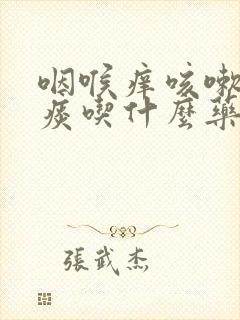 咽喉痒咳嗽
痰喫什麼藥
張武杰